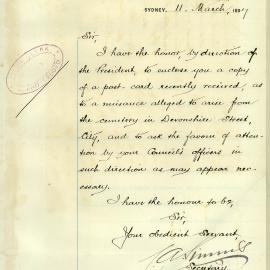 SYDNEY, 11 March, 1897
Sir,
I have the honor, by direction of
the President, to enclose you a copy
of a post-card recently received, as
to a nuisance alleged to arise from
the cemetery in Devonshire Street,
City, and to ask the favour of atten-
tion by your Council's officers in
such direction as may appear nec-
essary.
I have the honour to be,
Sir,
Your Obedient Servant,
Secretary